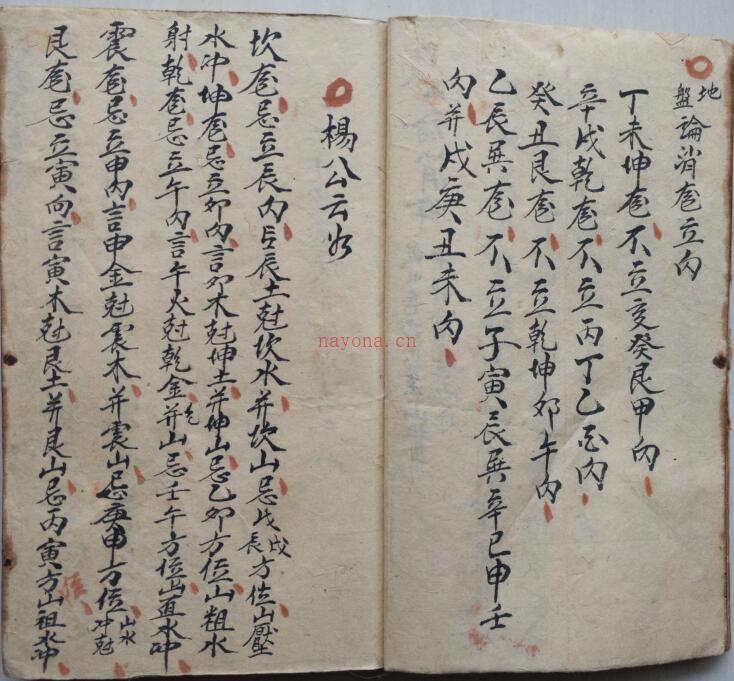 地盤論消庬立向
丁未坤庬不立亥癸艮甲向
辛戌乾庬不立丙丁乙向
癸丑艮庬不立乾坤卯午向
乙辰巽庬不立子寅辰巽辛巳申壬
向并戌庚丑未向
楊公云
坎庬忌立辰向言辰土尅坎水并坎山忌戊辰戌方位山壓
水冲坤庬忌立卯向言卯木尅坤土并坤山忌乙卯方位山粗水
射乾庬忌立午向言午火尅乾金并乾山忌壬午方位山直水冲
震庬忌立申向言申金尅震木并震山忌庚申方位山水冲尅
艮庬忌立寅向言寅木尅艮土并艮山忌丙寅方位山祖水冲
nayona.cn